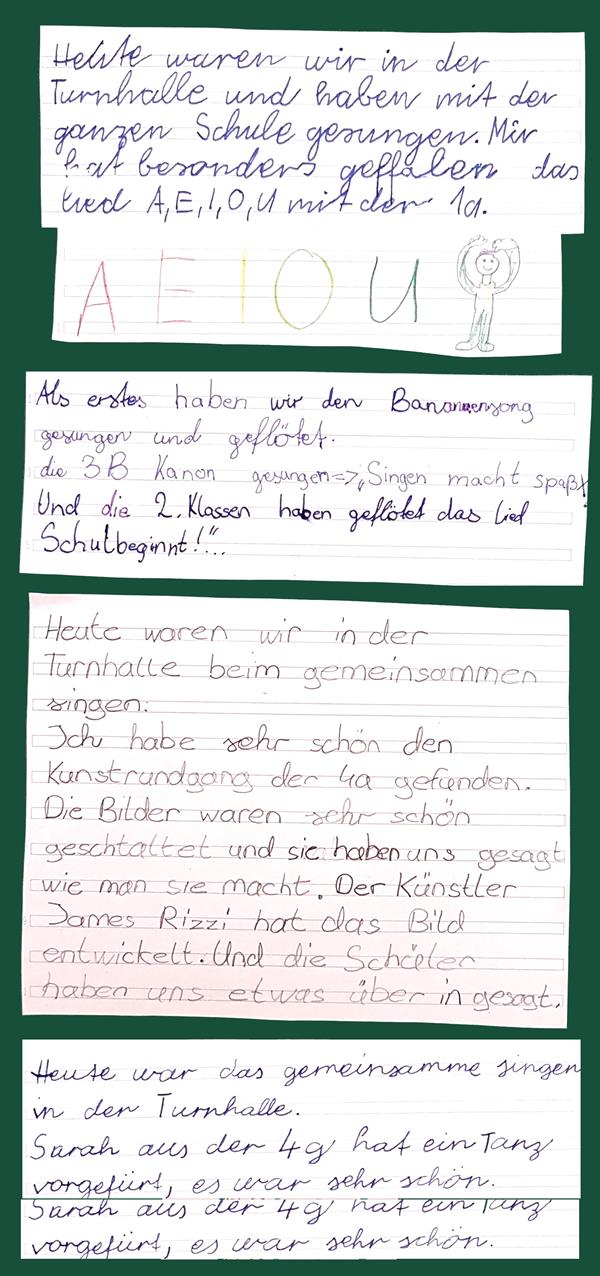 Heute waren wir in der
Turnhalle und haben mit der
ganzen Schule gesungen. Mir
hat besonders geffalen das
Lied A, E, I, O, U mit der 1a.
A E I O U
Als erstes haben wir den Bananensong
gesungen und geflötet.
die 3B Kanon gesungen=>„Singen macht spaß!
Und die 2. Klassen haben geflötet das Lied
Schulbeginnt!"...
Heute waren wir in der
Turnhalle beim gemeinsammen
singen.
Ich habe sehr schön den
Kunstrundgang der 4a gefunden.
Die Bilder waren sehr schön
geschtaltet und sie haben uns gesagt
wie man sie macht. Der Künstler
James Rizzi hat das Bild
entwickelt. Und die Schüler
haben uns etwas über in gesagt.
Heute war das gemeinsamme singen
in der Turnhalle.
Sarah aus der 4g hat ein Tanz
vorgefürt, es war sehr schön.
Sarah aus der 4g hat ein Tanz
vorgefürt, es war sehr schön.